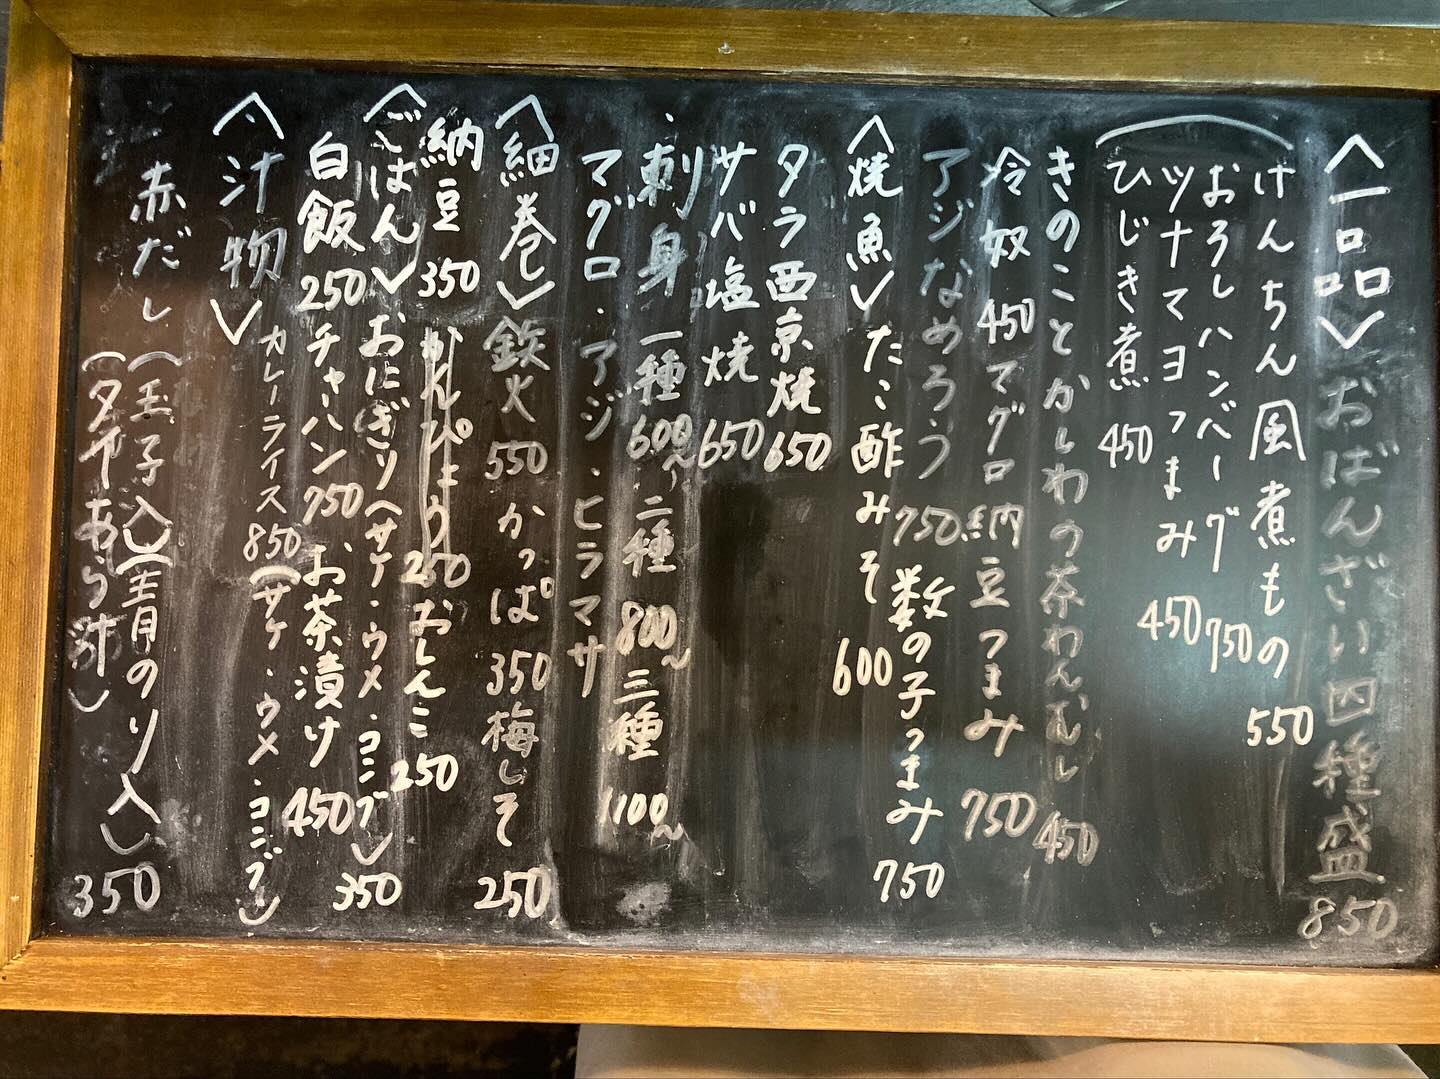 〈一品〉おばんざい四種盛 850
けんちん風煮もの 550
おろしハンバーグ 750
ツナマヨつまみ 450
ひじき煮 450
きのことかしわの茶わんむし 450
冷奴 450 マグロ納豆つまみ 750
アジなめろう 750 数の子つまみ 750
〈焼魚〉たこ酢みそ 600
タラ西京焼 650
サバ塩焼 650
・刺身 一種 600〜 二種 800〜 三種 1100〜
マグロ・アジ・ヒラマサ
〈細巻〉鉄火 550 かっぱ 350 梅しそ 250
納豆 350 かんぴょう 250 おしんこ 250
〈ごはん〉おにぎり(サケ・ウメ・コンブ) 350
白飯 250 チャーハン 750 お茶漬け 450
カレーライス 850 (サケ・ウメ・コンブ)
〈汁物〉
赤だし(玉子入)(青のり入) 350
(タイあら汁)